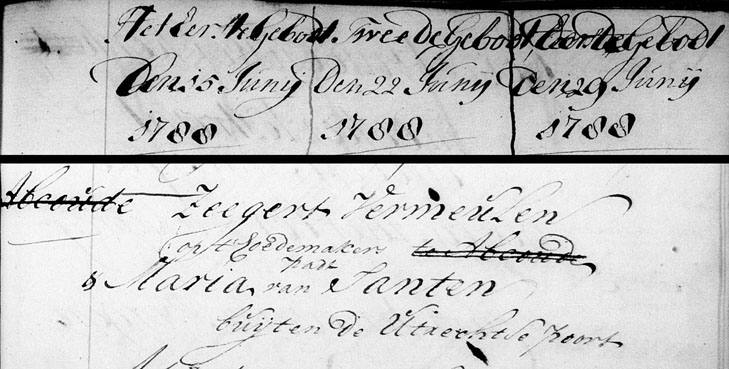 Het Eerste Gebodt. Tweede Gebodt Derde Gebodt
Den 15 Junij Den 22 Junij Den 29 Junij
1788 1788 1788
Abcoude Zeegert Vermeulen
opt Goedemaker te Abcoude
padt
& Maria van Santen
buyten de Utrechtse poort